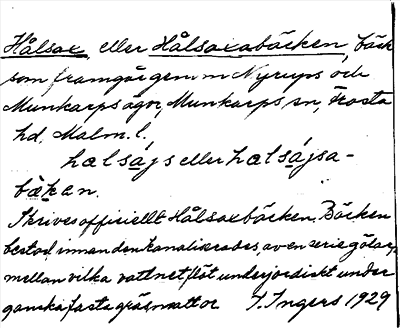 Hålsax, eller Hålsaxabäcken, bäck
som framgår genom Nyrups och
Munkarps ägor, Munkarps sn, Frosta
hd, Malm. l.
hælsájs eller hælsájsa-
bækæn.
Skrives officiellt Hålsaxbäcken. Bäcken
bestod, innan den kanaliserades, av en serie gölar,
mellan vilka vattnet flöt underjordiskt under
ganska fasta gräsmattor I. Ingers 1929